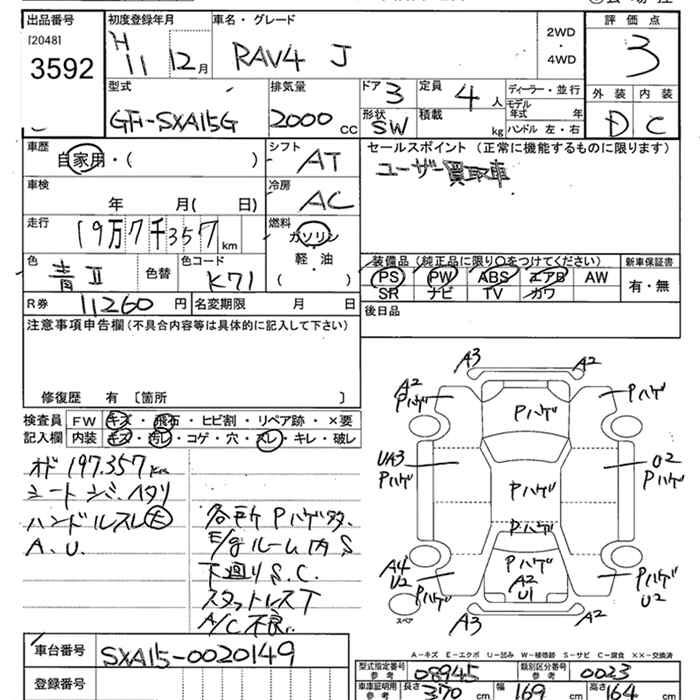 出品番号
[2048]
3592
初度登録年月
H 11 12月
車名・グレード
RAV4 J
2WD
・
4WD
評価点
3
外装 内装
D C
型式
GF-SXA15G
排気量
2000 cc
ドア 3
形状 SW
定員 4 人
積載 kg
ディーラー・並行
モデル年式 年
ハンドル 左・右
車歴
自家用・( )
シフト AT
冷房 AC
セールスポイント (正常に機能するものに限ります)
ユーザー買取車
車検
年 月( 日)
走行
19万7千357 km
燃料
ガソリン
軽・油
( )
色
青II 色替
色コード
K71
装備品 (純正品に限り○をつけてください)
PS PW ABS エアB AW
SR ナビ TV カワ
新車保証書
有・無
R券 11260 円 名変期限 月 日
後日品
注意事項申告欄 (不具合内容等は具体的に記入して下さい)
修復歴 有 〔箇所 〕
検査員 FW キズ・飛石・ヒビ割・リペア跡・×要
記入欄 内装 キズ・汚レ・コゲ・穴・スレ・キレ・破レ
オド 197.357km
シートシミ・ヘタリ
ハンドルスレ大
A.U.
各所Pハゲ多
E/gルーム内S
下廻りS.C.
スタットレスT
A/C不良
A3 A2
A2 Pハゲ Pハゲ Pハゲ
UA3 Pハゲ Pハゲ U2 Pハゲ
Pハゲ
A4 U2 Pハゲ Pハゲ A2 U1 Pハゲ U2
スペア
A3 A2
車台番号 SXA15-0020149
登録番号
A－キズ E－エクボ U－凹み W－補修跡 S－サビ C－腐食 ××－交換済
型式指定番号 参考 08945 類別区分番号 参考 0023
車庫証明用 参考 長さ 370 cm 幅 169 cm 高さ 164 cm